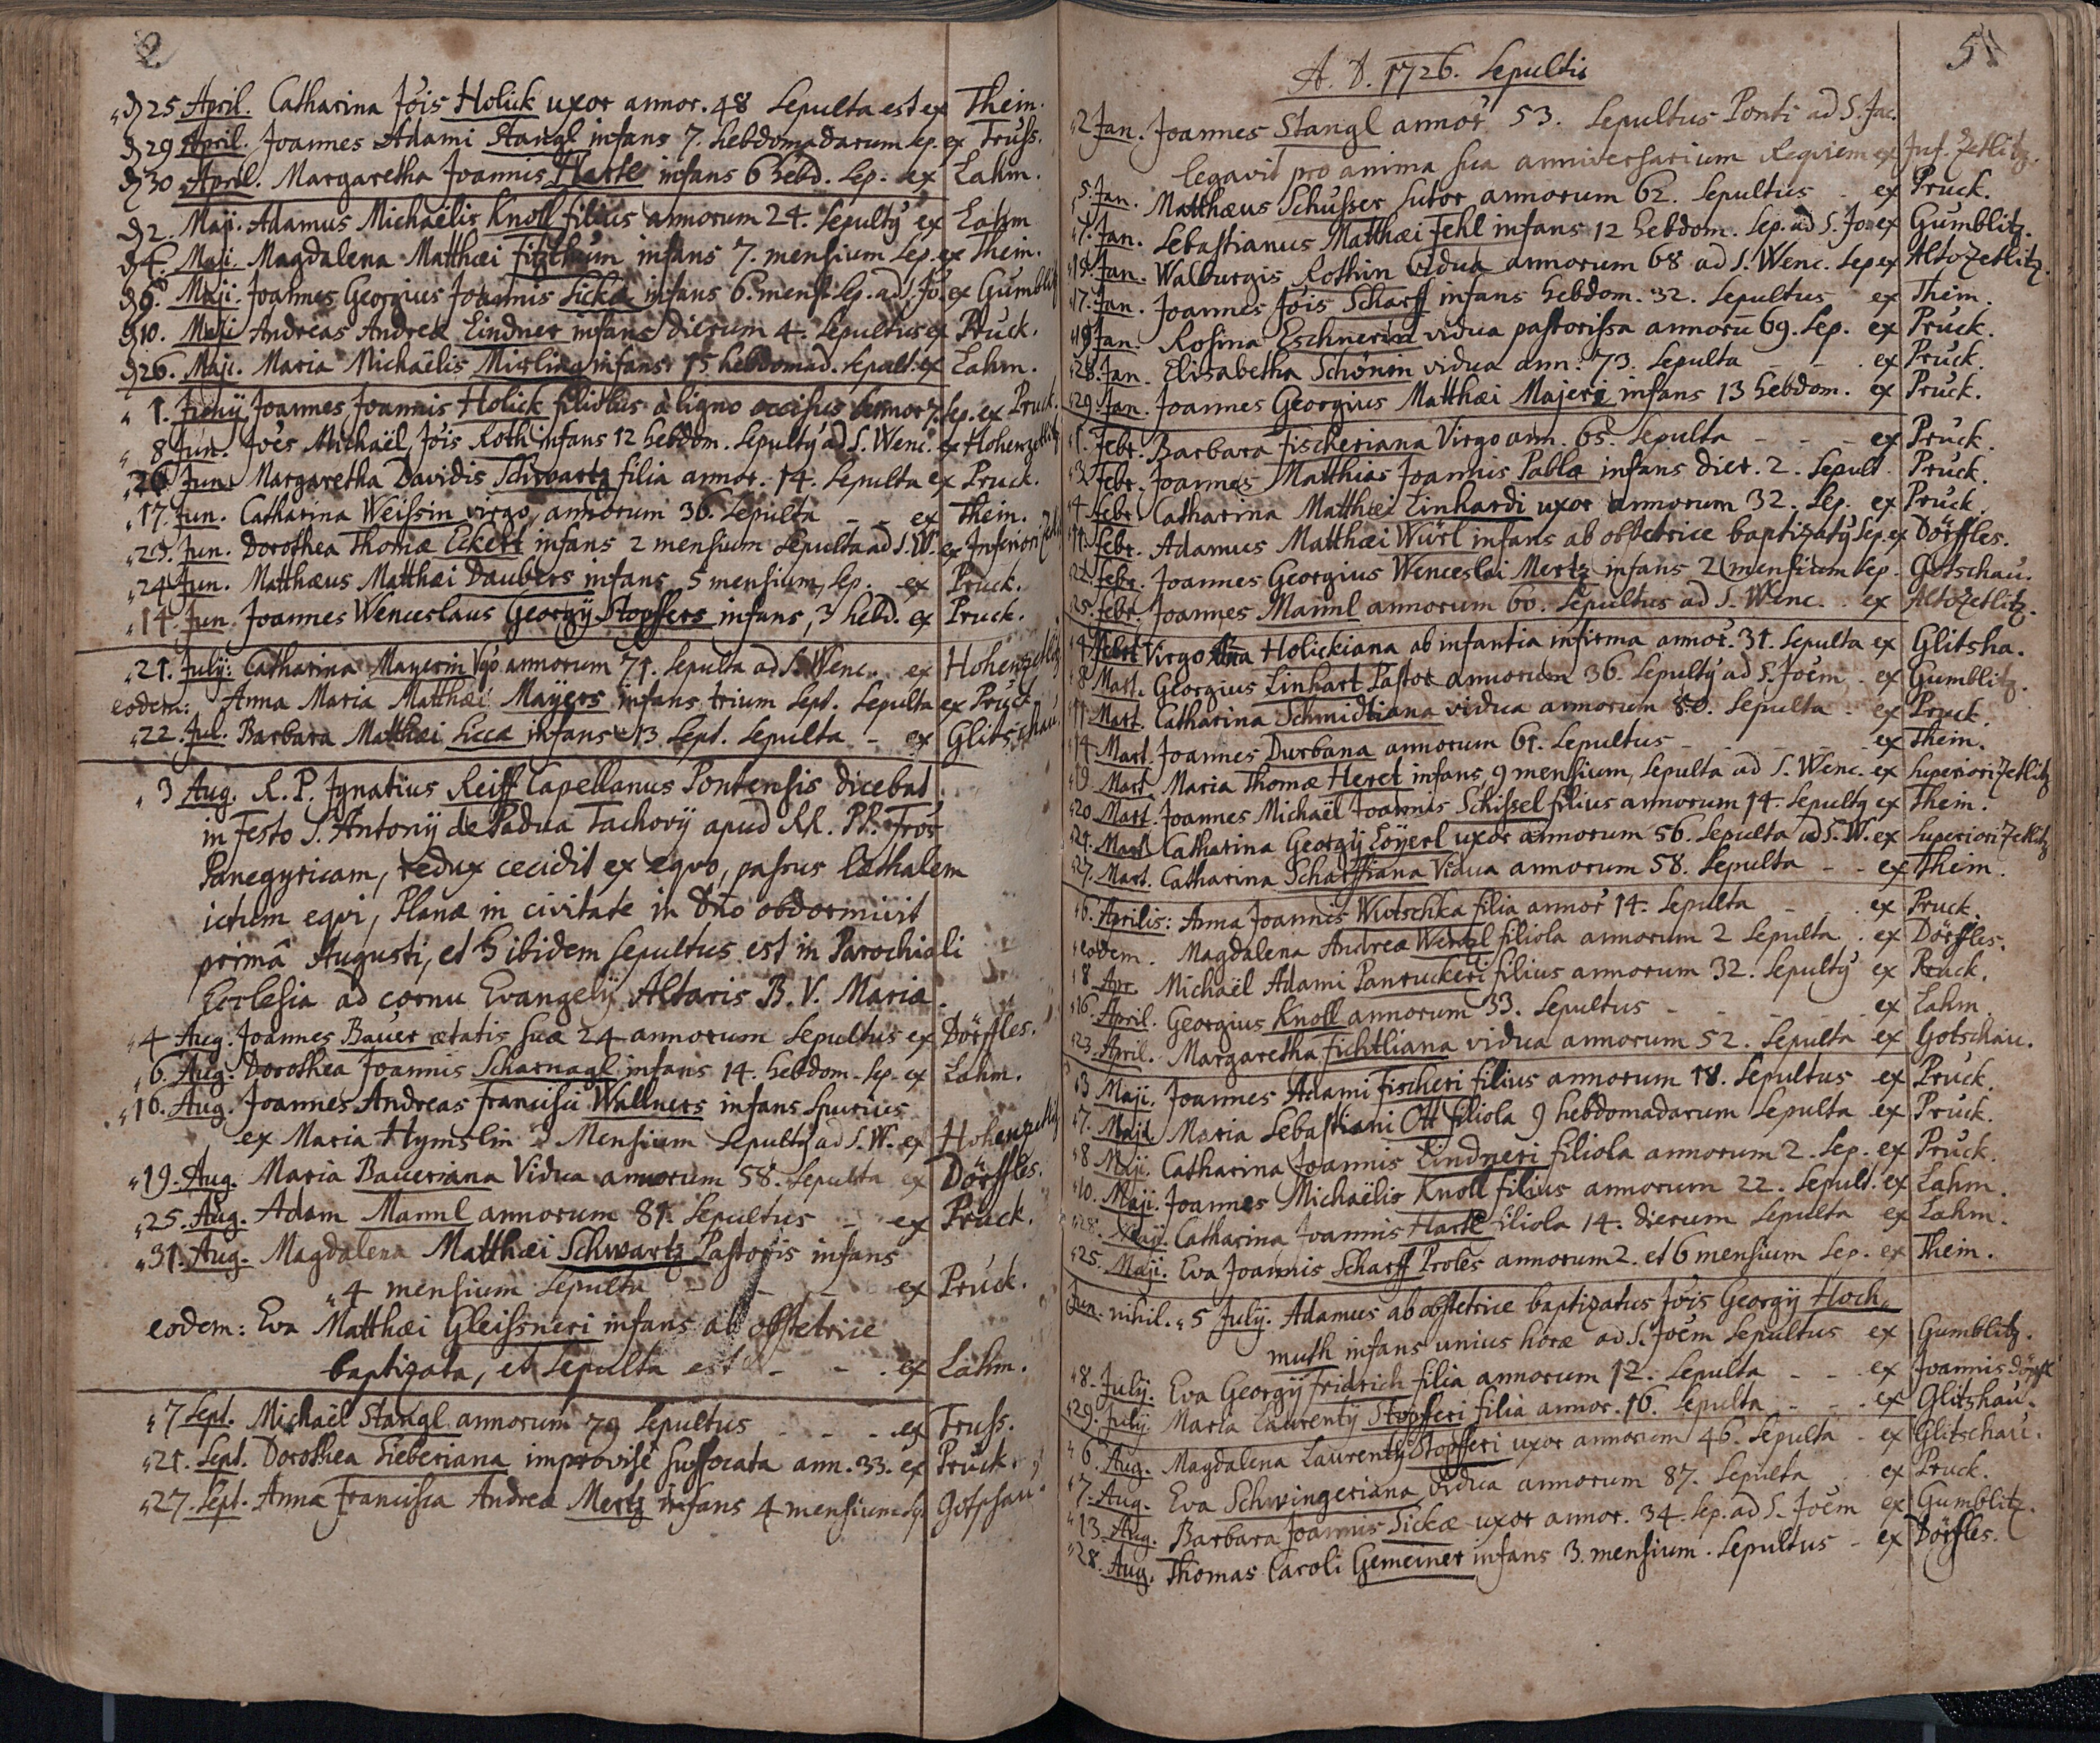 2
D 25 April. Catharina Jōis Holick uxor annor. 48 Sepulta est ex Thein.
D 29 April. Joannes Adami Stangl infans 7. hebdomadarum sep. ex Truss.
D 30 April. Margaretha Joannis Hartl infans 6 hebd. Sep. ex Lahm.
D 2. Maji. Adamus Michaëlis Knoll filius annorum 24. Sepultÿ ex Lahm
D 4. Maji. Magdalena Matthæi fitzthum infans 7. mensium Sep. ex Thein.
D 6. Maji. Joannes Georgius Joannis Sicka infans 6. mens. Sep. ad S. Jo. ex Gumblitz
D 10. Maji Andreas Andreæ Lindner infans dierum 4. Sepultus ex Pruck.
D 26. Maji. Maria Michaëlis Mirling infans 15 hebdomad. Sepult. ex Lahm.
1. Junÿ Joannes Joannis Holick filiolus à ligno occisus annor. 7. Sep. ex Pruck.
8 Jun. Joēs Michaël Jōis Roth infans 12 hebdom. Sepultÿ ad S. Wenc. ex Hohenzetlitz
26 Jun. Margaretha Davidis Schwartz filia annor. 14. Sepulta ex Pruck.
17. Jun. Catharina Weissin virgo, annorum 36. Sepulta - - ex Thein.
23. Jun. Dorothea Thomæ Eckert infans 2 mensium Sepulta ad S. W. ex Inferiori Zetl.
24 Jun. Matthæus Matthæi Daubers infans 5 mensium, Sep. ex Pruck.
14 Jun. Joannes Wenceslaus Georgÿ Stopfers infans, 3 hebd. ex Pruck.
21. July: Catharina Mayerin Vgo annorum 71. Sepulta ad S. Wenc. ex Hohenzetlitz
eodem: Anna Maria Matthæi Mayers infans trium Sept. Sepulta ex Pruck.
22. Jul. Barbara Matthæi Sicca infans 13 Sept. Sepulta - ex Glitschau.
3 Aug. R. P. Ignatius Reiff Capellanus Pontensis dicebat
in Festo S. Antonÿ de Padua Tachovÿ apud RR. PP. Frōs
Panegyricam, redux cecidit ex eqvo, passus læthalem
ictum eqvi, Planæ in civitate in Dño obdormivit
primâ Augusti, et 3 ibidem sepultus est in Parochiali
Ecclesia ad cornu Evangelÿ Altaris B. V. Mariæ.
4 Aug. Joannes Bauer ætatis suæ 24 annorum Sepultus ex Dörffles.
6. Aug. Dorothea Joannis Scharnagl infans 14. hebdom. Sep. ex Lahm.
16. Aug. Joannes Andreas francisci Wallners infans Spurius
ex Maria Hymslin 3 Mensium Sepultÿ ad S. W. ex Hohenzetlitz
19. Aug. Maria Baueriana Vidua annorum 58. Sepulta ex Dörffles.
25. Aug. Adam Mannl annorum 81. Sepultus - ex Pruck.
31. Aug. Magdalena Matthæi Schwartz Pastoris infans
4 mensium Sepulta - - - ex Pruck.
eodem: Eva Matthæi Gleissneri infans ab obstetrice
baptizata, et Sepulta est - - . ex Lahm.
7 Sept. Michaël Stangl annorum 79 Sepultus - - - ex Truss.
21. Sept. Dorothea Lieberiana improvisè suffocata ann. 33. ex Pruck.
27. Sept. Anna Francisca Andreæ Mertz infans 4 mensium Sep. Gotschau.
51
A. D. 1726. Sepulti
2 Jan. Joannes Stangl annor 53. Sepultus Ponti ad S. Jac.
legavit pro anima sua anniversarium Reqviem ex Inf. Zetlitz.
5. Jan. Matthæus Schusser Sutor annorum 62. Sepultus - ex Pruck.
7. Jan. Sebastianus Matthæi Fehl infans 12 hebdom. Sep. ad S. Jo. ex Gumblitz.
15. Jan. Walburgis Rothin Vidua annorum 68 ad S. Wenc. Sep ex AltoZetlitz.
17. Jan. Joannes Jōis Scharff infans hebdom. 32. Sepultus ex Thein.
19 Jan. Rosina Eschnerin vidua pastorissa annorū 69. Sep. ex Pruck.
28. Jan. Elisabetha Schönin vidua ann. 73. Sepulta - . ex Pruck.
29. Jan. Joannes Georgius Matthæi Majeri infans 13 hebdom. ex Pruck.
1. Febr. Barbara Fischeriana Virgo ann. 65. Sepulta - - - ex Pruck.
3. Febr. Joannes Matthias Joannis Pabla infans dier. 2. Sepult. Pruck.
4 Febr. Catharina Matthæi Linhardi uxor annorum 32. Sep. ex Pruck.
11. Febr. Adamus Matthæi Würl infans ab obstetrice baptizatÿ Sep. ex Dörffles.
22. Febr. Joannes Georgius Wenceslai Mertz infans 2 mensium Sep. Gotschau.
25. Febr. Joannes Mannl annorum 60. Sepultus ad S. Wenc. . ex AltoZetlitz.
Virgo Añna Holickiana ab infantia infirma annor. 31. Sepulta ex Glitsha.
8 Mart. Georgius Linhart Pastor annorum 36. Sepultÿ ad S. Joēm . ex Gumblitz.
11 Mart. Catharina Schmidtiana vidua annorum 80. Sepulta . ex Pruck.
14 Mart. Joannes Durbana annorum 61. Sepultus - - - - - ex Thein.
19 Mart. Maria Thomæ Heret infans 9 mensium, Sepulta ad S. Wenc. ex Superiori Zetlitz
20 Mart. Joannes Michaël Joannis Schissel filius annorum 14. Sepultÿ ex Thein.
21. Mart. Catharina Georgÿ Löyerl uxor annorum 56. Sepulta ad S. W. ex Superiori Zetlitz
27. Mart. Catharina Scharffiana Vidua annorum 58. Sepulta - - ex Thein.
6. Aprilis: Anna Joannis Wutschka filia annor 14. Sepulta - . ex Pruck.
eodem. Magdalena Andreæ Wentzl filiola annorum 2 Sepulta . ex Dörffles.
8 Apr. Michaël Adami Panruckeri filius annorum 32. Sepultÿ ex Pruck.
16. April. Georgius Knoll annorum 33. Sepultus - - - - - ex Lahm.
23. April. Margaretha Fichtliana vidua annorum 52. Sepulta ex Gotschau.
3 Maji. Joannes Adami Fischeri filius annorum 18. Sepultus ex Pruck.
7. Maji. Maria Sebastiani Ott filiola 9 hebdomadarum Sepulta ex Pruck.
8 Maji. Catharina Joannis Lindneri filiola annorum 2. Sep. ex Pruck.
10. Maji. Joannes Michaëlis Knoll filius annorum 22. Sepult. ex Lahm.
Maji. Catharina Joannis Hartl filiola 14. dierum Sepulta ex Lahm.
25. Maji. Eva Joannis Scharff Proles annorum 2. et 6 mensium Sep. ex Thein.
Jun. nihil. 5 July. Adamus ab obstetrice baptizatus Jōis Georgÿ Hoch-
muth infans unius horæ ad S. Joēm Sepultus ex Gumblitz.
8. July. Eva Georgÿ Fridrich filia annorum 12. Sepulta - - . ex Joannis Dörffl
29. July. Maria Laurentÿ Stopfferi filia annor. 16. Sepulta - - . ex Glitshau.
6. Aug. Magdalena Laurentÿ Stopfferi uxor annorum 46. Sepulta - ex Glitschau.
7. Aug. Eva Schwingeriana vidua annorum 87. Sepulta ex Pruck.
13. Aug. Barbara Joannis Sickæ uxor annor. 34. Sep. ad S. Joēm ex Gumblitz.
28. Aug. Thomas Caroli Gemeiner infans 3. mensium. Sepultus - ex Dörffles.